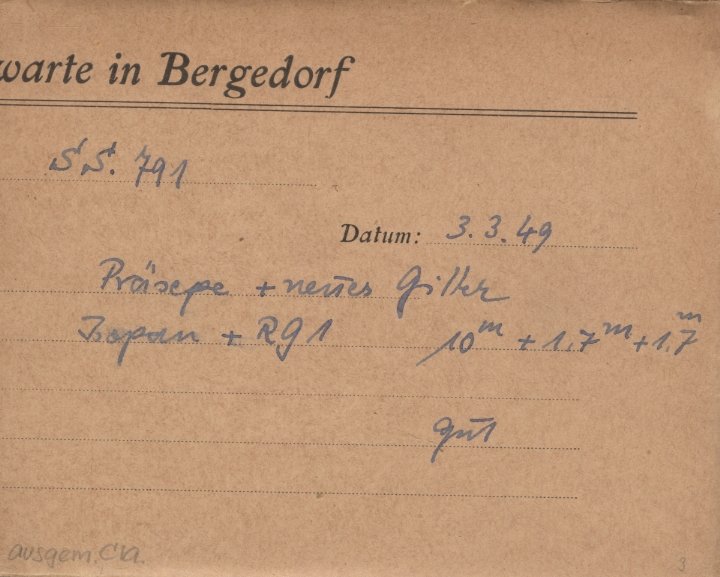 warte in Bergedorf
SS. 791
Datum: 3.3.49
Präsepe + neues Gitter
Isopan + RG1 10m + 1.7m + 1.7m
gut
ausgem.
3